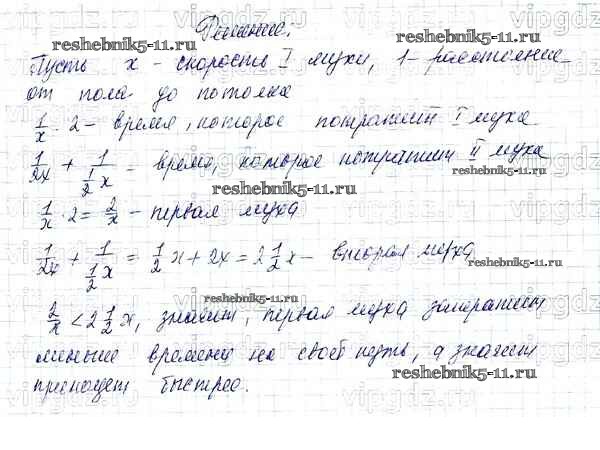 Решение.
Пусть x - скорость I мухи, 1 - расстояние
от пола до потолка
1/x · 2 - время, которое потратит I муха
1/2x + 1/(1/2 x) = время, которое потратит II муха
1/x · 2 = 2/x - первая муха
1/2x + 1/(1/2 x) = 1/2 x + 2x = 2 1/2 x - вторая муха
2/x < 2 1/2 x, значит, первая муха затратит
меньше времени на свой путь, а значит
приползет быстрее.
reshebnik5-11.ru
reshebnik5-11.ru
reshebnik5-11.ru
reshebnik5-11.ru
reshebnik5-11.ru
reshebnik5-11.ru
reshebnik5-11.ru
vipgdz